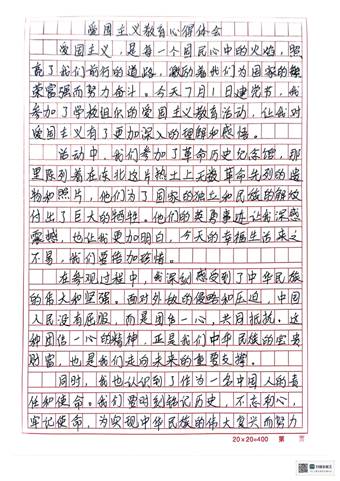 爱国主义教育心得体会
爱国主义，是每一个国民心中的火焰，照
亮了我们前行的道路，激励着我们为国家的繁
荣富强而努力奋斗。今天7月1日建党节，我
参加了学校组织的爱国主义教育活动，让我对
爱国主义有了更加深入的理解和感悟。
活动中，我们参加了革命历史纪念馆，那
里陈列着在东北这片热土上无数革命先烈的遗
物和照片，他们为了国家的独立和民族的解放
付出了巨大的牺牲。他们的英勇事迹让我深感
震撼，也让我更加明白，今天的幸福生活来之
不易，我们要倍加珍惜。
在参观过程中，我深刻感受到了中华民族
的伟大和坚强。面对外敌的侵略和压迫，中国
人民没有屈服，而是团结一心，共同抵抗。这
种团结一心的精神，正是我们中华民族的宝贵
财富，也是我们走向未来的重要支撑。
同时，我也认识到了作为一名中国人的责
任和使命。我们要时刻铭记历史，不忘初心，
牢记使命，为实现中华民族的伟大复兴而努力
20×20=400 第 页
扫描全能王